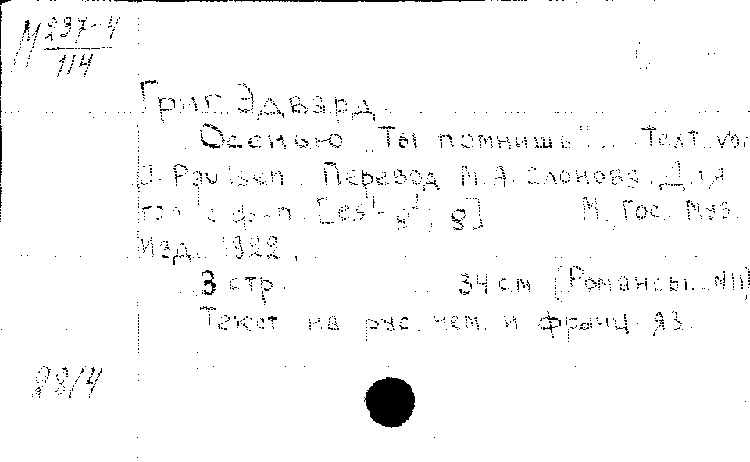 М 297-4
114
Григ Эдвард.
Осенью „Ты помнишь"... Text von
J. Paulsen. Перевод М. А. Слонова. Для
гол. с ф-п. [es¹-g²; g] М. Гос. Муз.
Изд. 1922.
3 стр. 34 см (Романсы. N11)
Текст на рус. нем. и франц. яз.
88/4